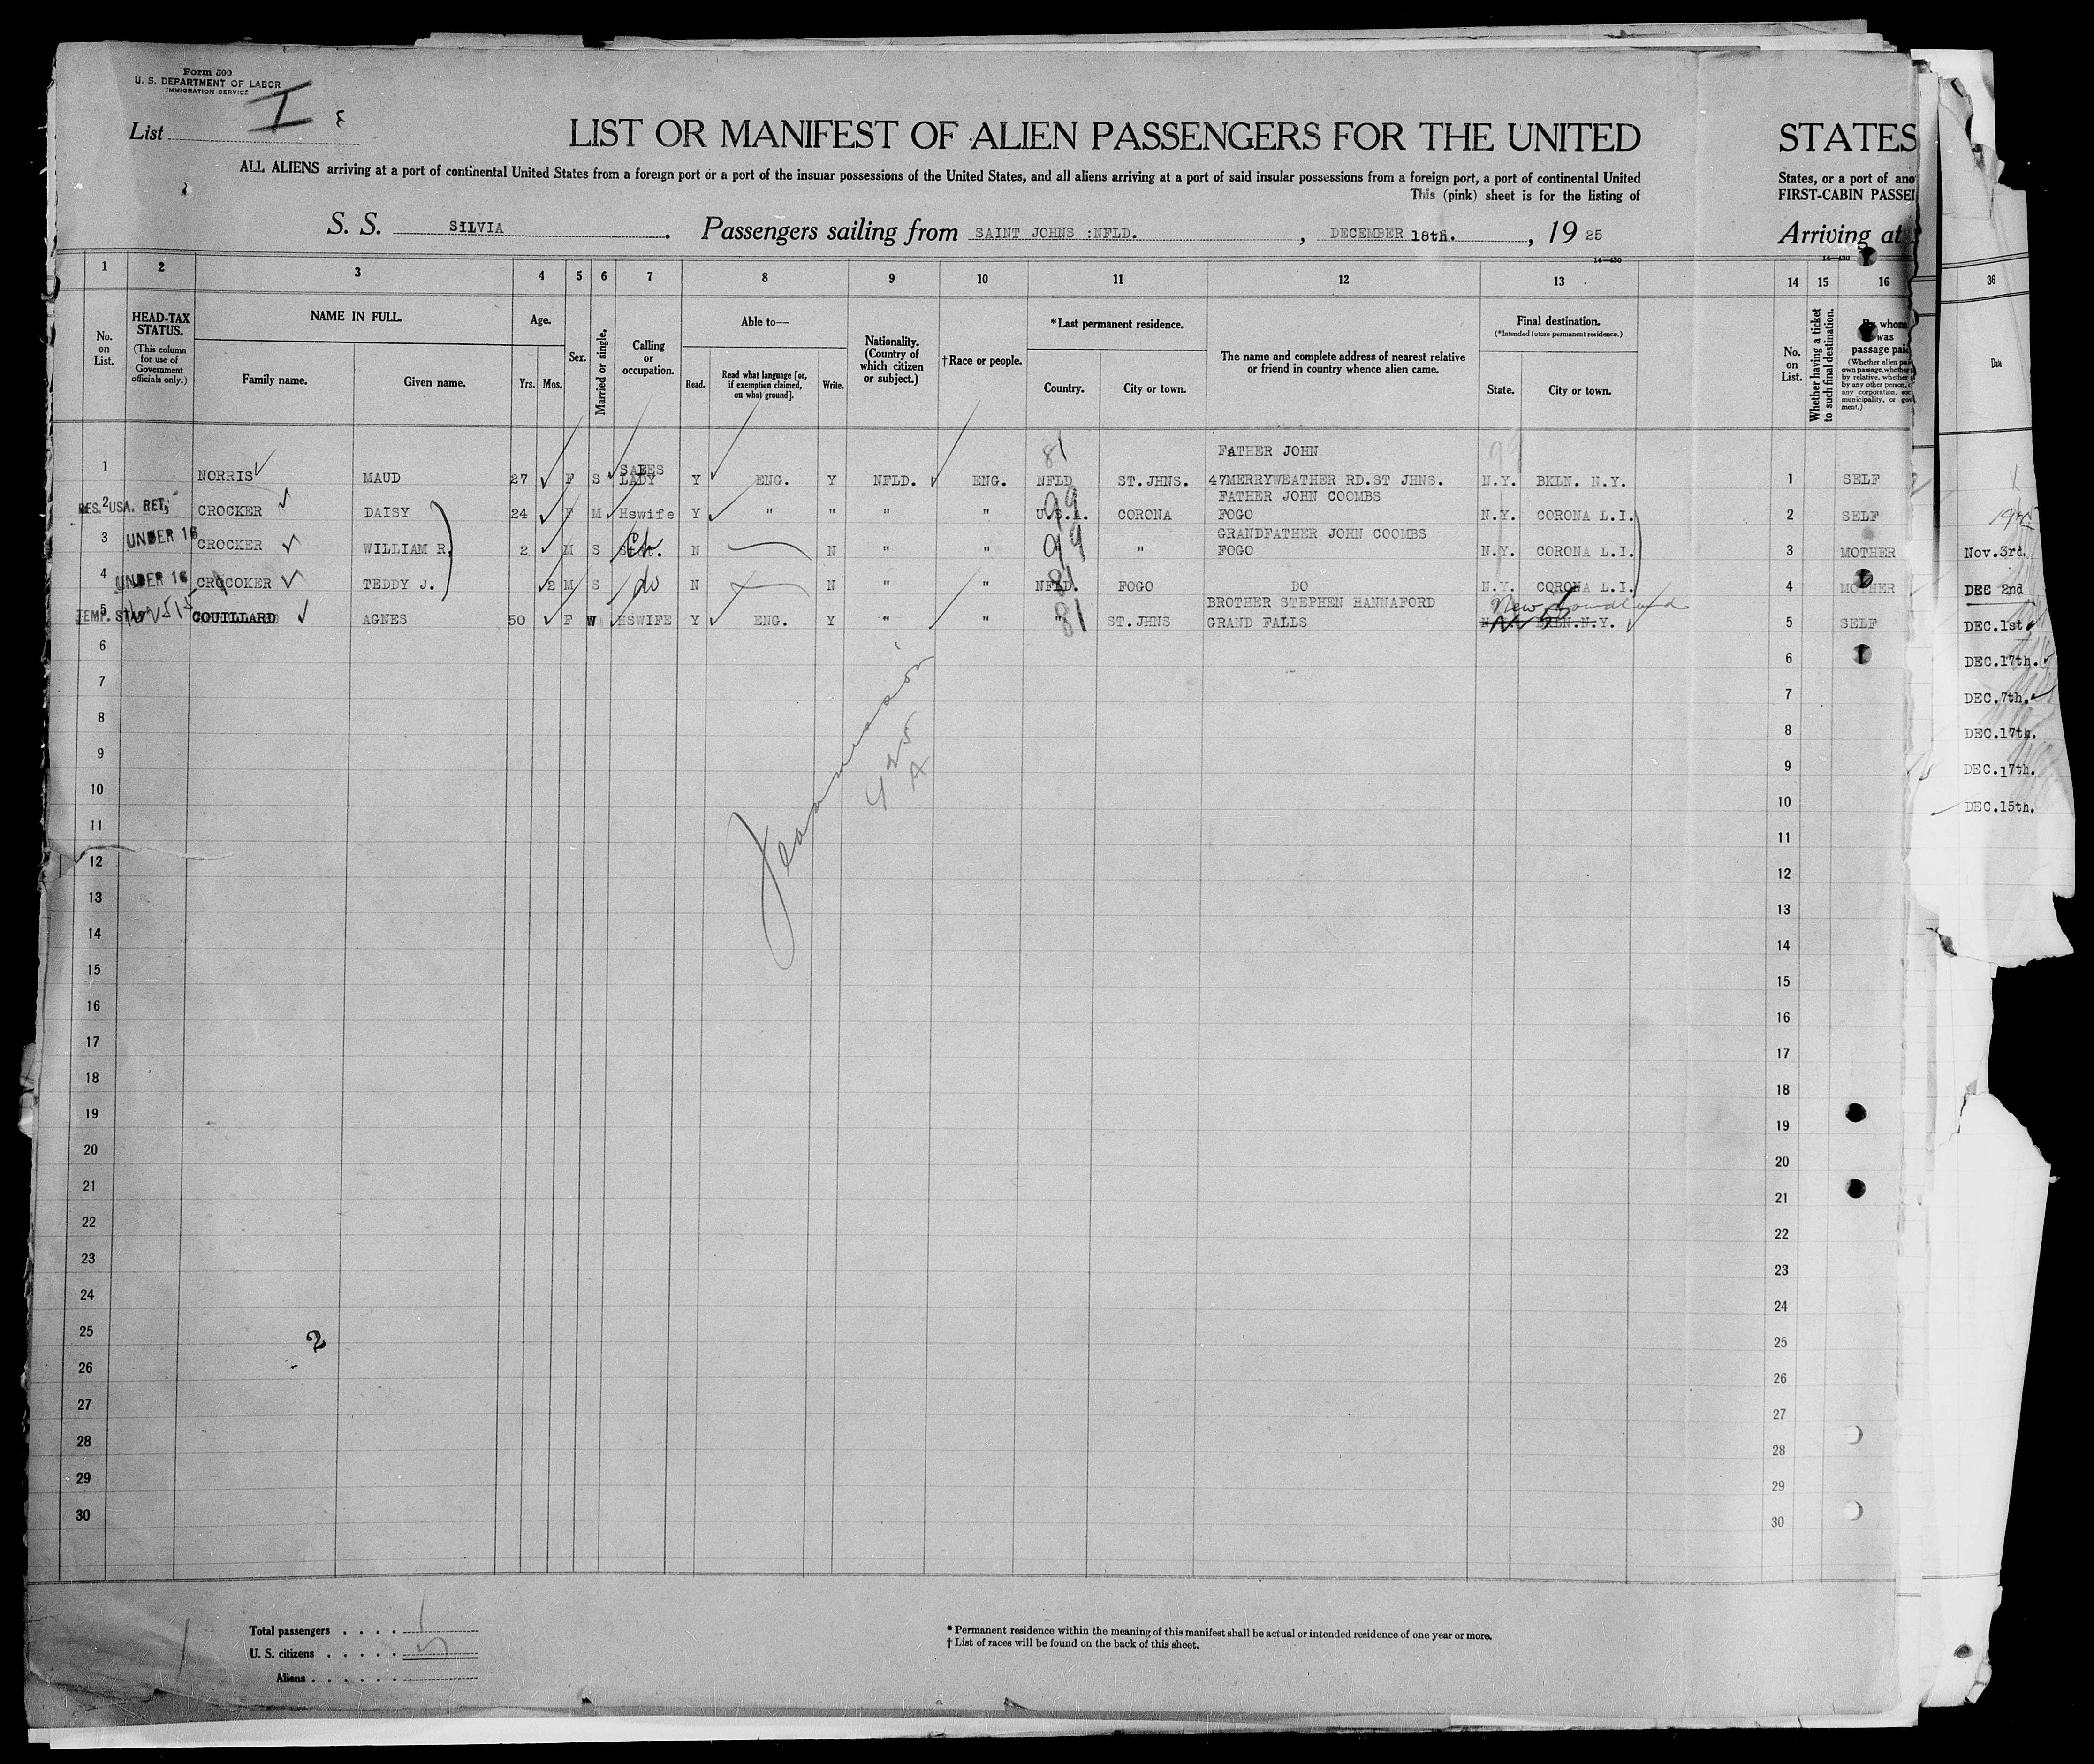 Form 500
U. S. DEPARTMENT OF LABOR
IMMIGRATION SERVICE
List I
LIST OR MANIFEST OF ALIEN PASSENGERS FOR THE UNITED STATES
ALL ALIENS arriving at a port of continental United States from a foreign port or a port of the insular possessions of the United States, and all aliens arriving at a port of said insular possessions from a foreign port, a port of continental United States, or a port of ano
This (pink) sheet is for the listing of FIRST-CABIN PASSE
S. S. SILVIA. Passengers sailing from SAINT JOHNS :NFLD., DECEMBER 18th., 19 25 Arriving at
14—430 14—430
1 2 3 4 5 6 7 8 9 10 11 12 13 14 15 16 36
No. on List.
HEAD-TAX STATUS. (This column for use of Government officials only.)
NAME IN FULL. Family name. Given name.
Age. Yrs. Mos.
Sex.
Married or single.
Calling or occupation.
Able to— Read. Read what language [or, if exemption claimed, on what ground]. Write.
Nationality. (Country of which citizen or subject.)
†Race or people.
*Last permanent residence. Country. City or town.
The name and complete address of nearest relative or friend in country whence alien came.
Final destination. (*Intended future permanent residence.) State. City or town.
No. on List.
Whether having a ticket to such final destination.
By whom was passage paid
Date
81 FATHER JOHN
1 NORRIS MAUD 27 F S SALES LADY Y ENG. Y NFLD. ENG. NFLD ST.JHNS. 47MERRYWEATHER RD.ST JHNS. N.Y. BKLN. N.Y. 1 SELF
99 FATHER JOHN COOMBS
RES. 2 USA. RET. CROCKER DAISY 24 F M Hswife Y " " " " U.S.A. CORONA FOGO N.Y. CORONA L.I. 2 SELF
99 GRANDFATHER JOHN COOMBS
3 UNDER 16 CROCKER WILLIAM R. 2 M S Ch. N N " " " FOGO N.Y. CORONA L.I. 3 MOTHER Nov.3rd.
4 UNDER 16 CROCOKER TEDDY J. 2 M S do N N " " NFLD. 81 FOGO DO N.Y. CORONA L.I. 4 MOTHER DEC 2nd
BROTHER STEPHEN HANNAFORD Newfoundland
5 TEMP. COUILLARD AGNES 50 F W HSWIFE Y ENG. Y " " " 81 ST.JHNS GRAND FALLS BKLN.N.Y. 5 SELF DEC.1st
6 6 DEC.17th.
7 7 DEC.7th.
8 8 DEC.17th.
9 9 DEC.17th.
10 10 DEC.15th.
11 11
12 12
13 13
14 14
15 15
16 16
17 17
18 18
19 19
20 20
21 21
22 22
23 23
24 24
25 2 25
26 26
27 27
28 28
29 29
30 30
Total passengers
U. S. citizens
Aliens
* Permanent residence within the meaning of this manifest shall be actual or intended residence of one year or more.
† List of races will be found on the back of this sheet.